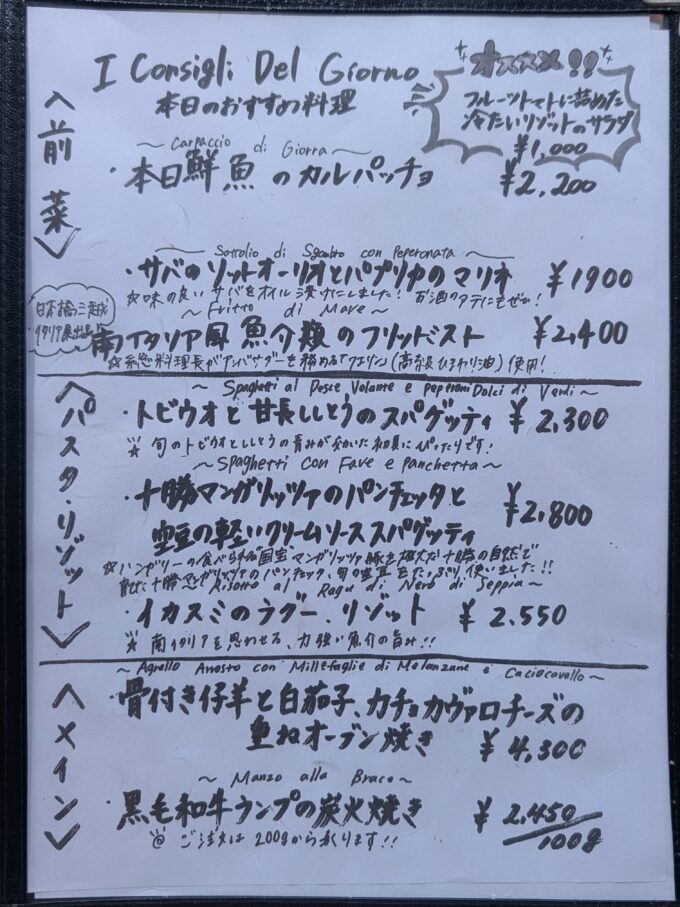 I Consigli Del Giorno
本日のおすすめ料理
オススメ!!
フルーツトマトに詰めた
冷たいリゾットのサラダ
¥1,000
〈前菜〉
~ Carpaccio di Giorra ~
・本日鮮魚のカルパッチョ ¥2,200
~ Sottolio di Sgombro con Peperonata ~
・サバのソットオーリオとパプリカのマリオ ¥1900
☆味の良いサバをオイル漬けにしました! お酒のアテにもぜひ!
日本橋三越
イタリア展出品
~ Fritto di Mare ~
南イタリア風 魚介類のフリットミスト ¥2,400
☆総料理長がアンバサダーを務める(高級ひまわり油)使用!
〈パスタ・リゾット〉
~ Spaghetti al Pesce Volante e Peperoni Dolci di Verdi ~
・トビウオと甘長ししとうのスパゲッティ ¥2,300
☆旬のトビウオとししとうの青みが効いた初夏にぴったりです!
~ Spaghetti con Fave e Panchetta ~
・十勝マンガリッツァのパンチェッタと
空豆の軽いクリームソーススパゲッティ ¥2,800
☆ハンガリーの食べられる国宝マンガリッツァ豚を雄大な十勝の自然で
育てた十勝マンガリッツァのパンチェッタ、旬の空豆をたっぷり使いました!!
~ Risotto al Ragu di Nero di Seppia ~
・イカスミのラグー、リゾット ¥2.550
☆南イタリアを思わせる、力強い魚介の旨み!!
〈メイン〉
~ Agnello Arrosto con Millefoglie di Melanzane e Caciocavallo ~
・骨付き仔羊と白茄子、カチョカヴァロチーズの
重ねオーブン焼き ¥4,300
~ Manzo alla Brace ~
・黒毛和牛ランプの炭火焼き ¥2,450/100g
ご注文は200gから承ります!!